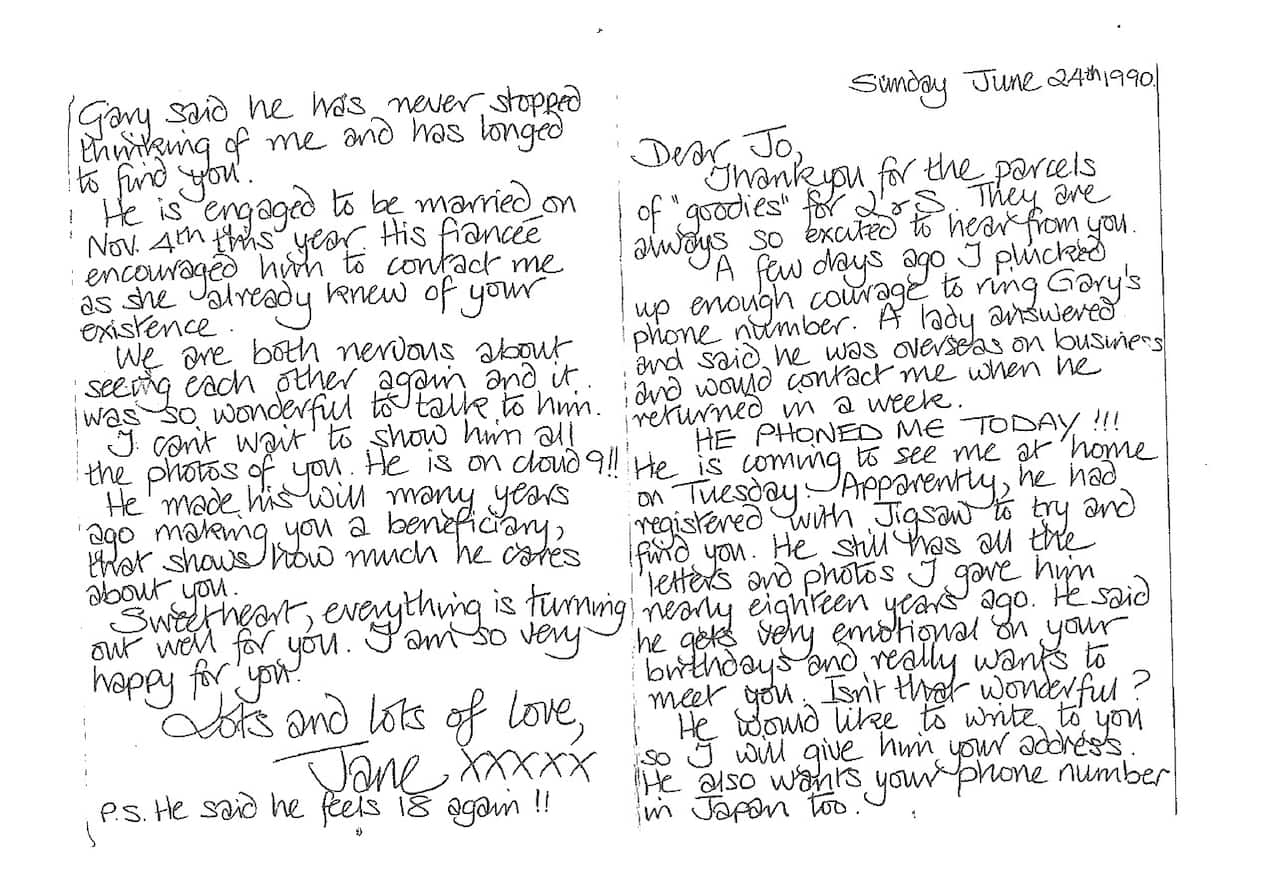 Sunday June 24th 1990.
Dear Jo,
Thankyou for the parcels
of "goodies" for L & S. They are
always so excited to hear from you.
A few days ago I plucked
up enough courage to ring Gary's
phone number. A lady answered
and said he was overseas on business
and would contact me when he
returned in a week.
HE PHONED ME TODAY!!!
He is coming to see me at home
on Tuesday. Apparently, he had
registered with Jigsaw to try and
find you. He still has all the
letters and photos I gave him
nearly eighteen years ago. He said
he gets very emotional on your
birthdays and really wants to
meet you. Isn't that wonderful?
He would like to write to you
so I will give him your address.
He also wants your phone number
in Japan too.
Gary said he has never stopped
thinking of me and has longed
to find you.
He is engaged to be married on
Nov. 4th this year. His fiancée
encouraged him to contact me
as she already knew of your
existence.
We are both nervous about
seeing each other again and it
was so wonderful to talk to him.
I can't wait to show him all
the photos of you. He is on cloud 9!!
He made his will many years
ago making you a beneficiary,
that shows how much he cares
about you.
Sweetheart, everything is turning
out well for you. I am so very
happy for you.
Lots and lots of love,
Jane XXXXX
P.S. He said he feels 18 again!!